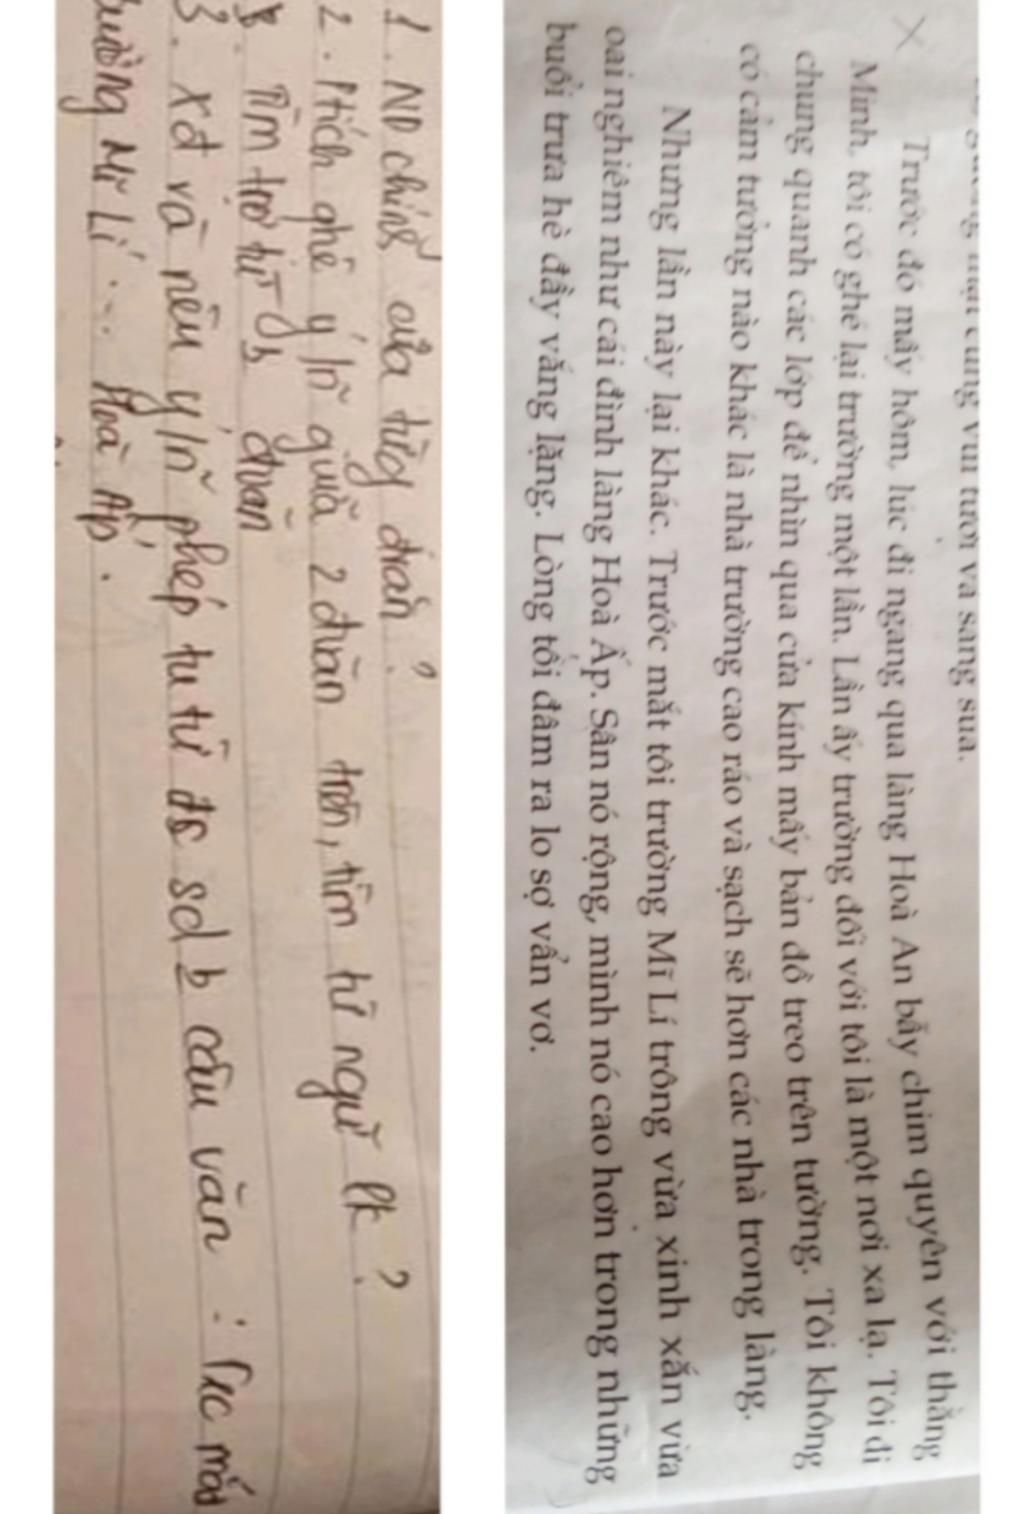 tươi và sáng sủa.
Trước đó mấy hôm, lúc đi ngang qua làng Hoà An bẫy chim quyên với thằng
Minh, tôi có ghé lại trường một lần. Lần ấy trường đối với tôi là một nơi xa lạ. Tôi đi
chung quanh các lớp để nhìn qua cửa kính mấy bản đồ treo trên tường. Tôi không
có cảm tưởng nào khác là nhà trường cao ráo và sạch sẽ hơn các nhà trong làng.
Nhưng lần này lại khác. Trước mắt tôi trường Mĩ Lí trông vừa xinh xắn vừa
oai nghiêm như cái đình làng Hoà Ấp. Sân nó rộng, mình nó cao hơn trong những
buổi trưa hè đầy vắng lặng. Lòng tôi đâm ra lo sợ vẩn vơ.
1. ND chính của từng đoạn?
2. Ptích ghê ý/n~ giữa 2 đoạn trên, tìm từ ngữ lk?
Tìm trợ từ đoạn
3. Xđ và nêu ý/n~ phép tu từ đc sd câu văn: Trc mắt
trường Mĩ Lí ... Hoà Ấp.